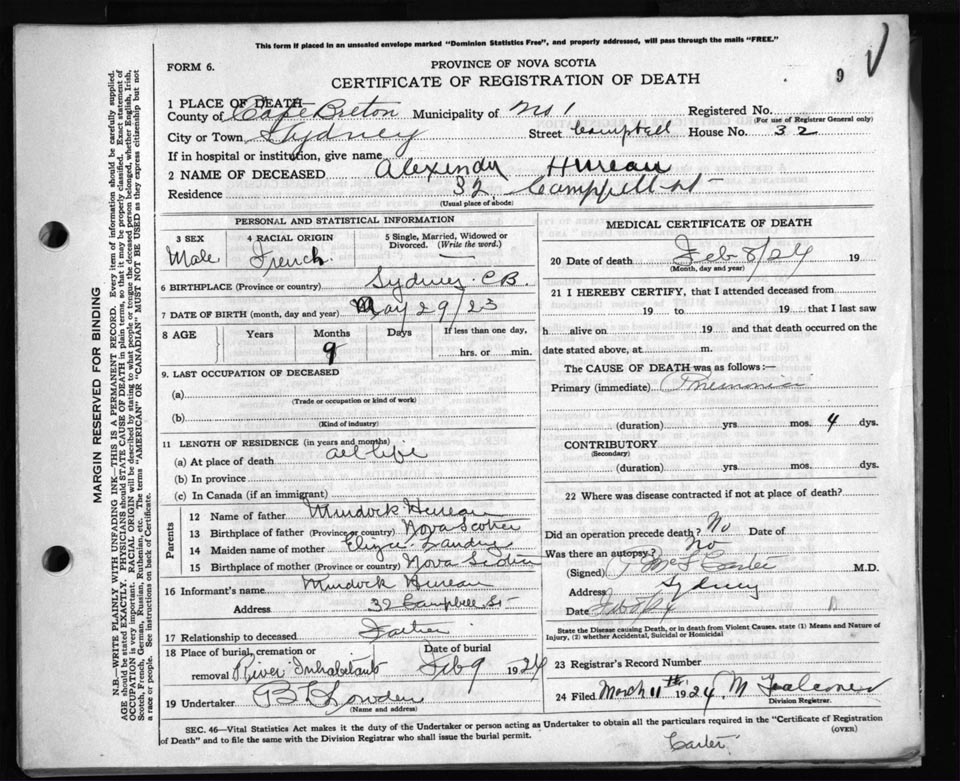 This form if placed in an unsealed envelope marked "Dominion Statistics Free", and properly addressed, will pass through the mails "FREE."
FORM 6.
PROVINCE OF NOVA SCOTIA
CERTIFICATE OF REGISTRATION OF DEATH
9
1 PLACE OF DEATH—
County of Cape Breton Municipality of No 1 Registered No.
(For use of Registrar General only)
City or Town Sydney Street Campbell House No. 32
If in hospital or institution, give name
2 NAME OF DECEASED Alexindry Hureau
Residence 32 Campbell St
(Usual place of abode)
PERSONAL AND STATISTICAL INFORMATION
3 SEX 4 RACIAL ORIGIN 5 Single, Married, Widowed or Divorced. (Write the word.)
Male French
6 BIRTHPLACE (Province or country) Sydney C B.
7 DATE OF BIRTH (month, day and year) May 29/23
8 AGE Years Months Days If less than one day,
9 hrs. or min.
9. LAST OCCUPATION OF DECEASED
(a)
(Trade or occupation or kind of work)
(b)
(Kind of industry)
11 LENGTH OF RESIDENCE (in years and months)
(a) At place of death all life
(b) In province
(c) In Canada (if an immigrant)
Parents
12 Name of father Murdock Hureau
13 Birthplace of father (Province or country) Nova Scotia
14 Maiden name of mother Landry
15 Birthplace of mother (Province or country) Nova Scotia
16 Informant's name Murdock Hureau
Address 32 Campbell St
17 Relationship to deceased Father
18 Place of burial, cremation or removal River Inhabitants Date of burial Feb 9 1924
19 Undertaker Lowden
(Name and address)
MEDICAL CERTIFICATE OF DEATH
20 Date of death Feb 8/24 19
(Month, day and year)
21 I HEREBY CERTIFY, that I attended deceased from
19 to 19 that I last saw
h alive on 19 and that death occurred on the
date stated above, at m.
The CAUSE OF DEATH was as follows:—
Primary (immediate) Pneumonia
(duration) yrs. mos. 4 dys.
CONTRIBUTORY
(Secondary)
(duration) yrs. mos. dys.
22 Where was disease contracted if not at place of death?
Did an operation precede death? No Date of
Was there an autopsy? No
(Signed) Carter M.D.
Address Sydney
Date
State the Disease causing Death, or in death from Violent Causes, state (1) Means and Nature of Injury, (2) whether Accidental, Suicidal or Homicidal
23 Registrar's Record Number
24 Filed March 11th 1924 M Falconer
Division Registrar.
SEC. 46—Vital Statistics Act makes it the duty of the Undertaker or person acting as Undertaker to obtain all the particulars required in the "Certificate of Registration
of Death" and to file the same with the Division Registrar who shall issue the burial permit.
(OVER)
Carter
MARGIN RESERVED FOR BINDING
N.B.—WRITE PLAINLY WITH UNFADING INK—THIS IS A PERMANENT RECORD. Every item of information should be carefully supplied.
AGE should be stated EXACTLY. PHYSICIANS should STATE CAUSE OF DEATH in plain terms, so that it may be properly classified. Exact statement of
OCCUPATION is very important. RACIAL ORIGIN will be described by stating to what people or tongue the deceased person belonged, whether English, Irish,
Scotch, French, German, Russian, Ruthenian, etc. The terms "AMERICAN" OR "CANADIAN" MUST NOT BE USED as they express citizenship but not
a race or people. See instructions on back of Certificate.